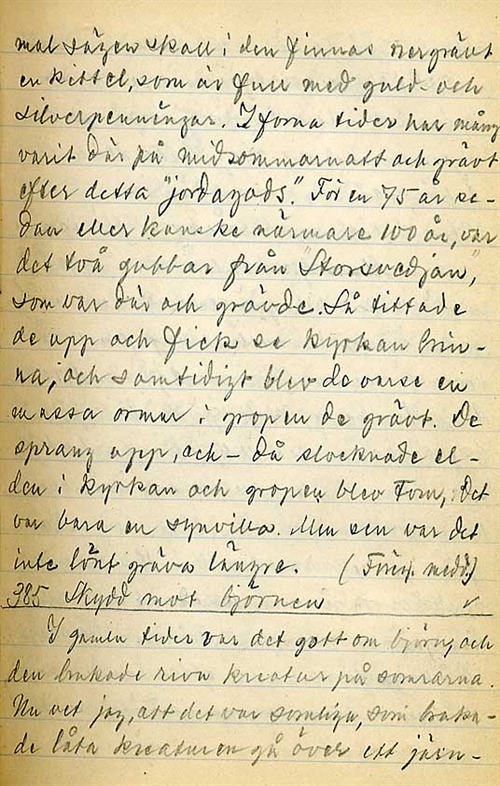 mal sägen skall i den finnas nergrävt
en kittel, som är full med guld- och
silverpenningar. I forna tider har mång
varit där på midsommarnatt och grävt
efter detta "jordagods". För en 75 år se-
dan eller kanske närmare 100 år, var
det två gubbar från "Storsvedjan",
som var där och grävde. Så tittade
de upp och fick se kyrkan brin-
na, och samtidigt blev de varse en
massa ormar i gropen de grävt. De
sprang upp, och – då slocknade el-
den i kyrkan och gropen blev tom, det
var bara en synvilla. Men sen var det
inte lönt gräva längre. ( medd.)
385 Skydd mot björnen ✓
I gamla tider var det gott om björn, och
den brukade riva kreatur på somrarna.
Nu vet jag, att det var somliga, som bruka-
de låta kreaturen gå över ett järn-